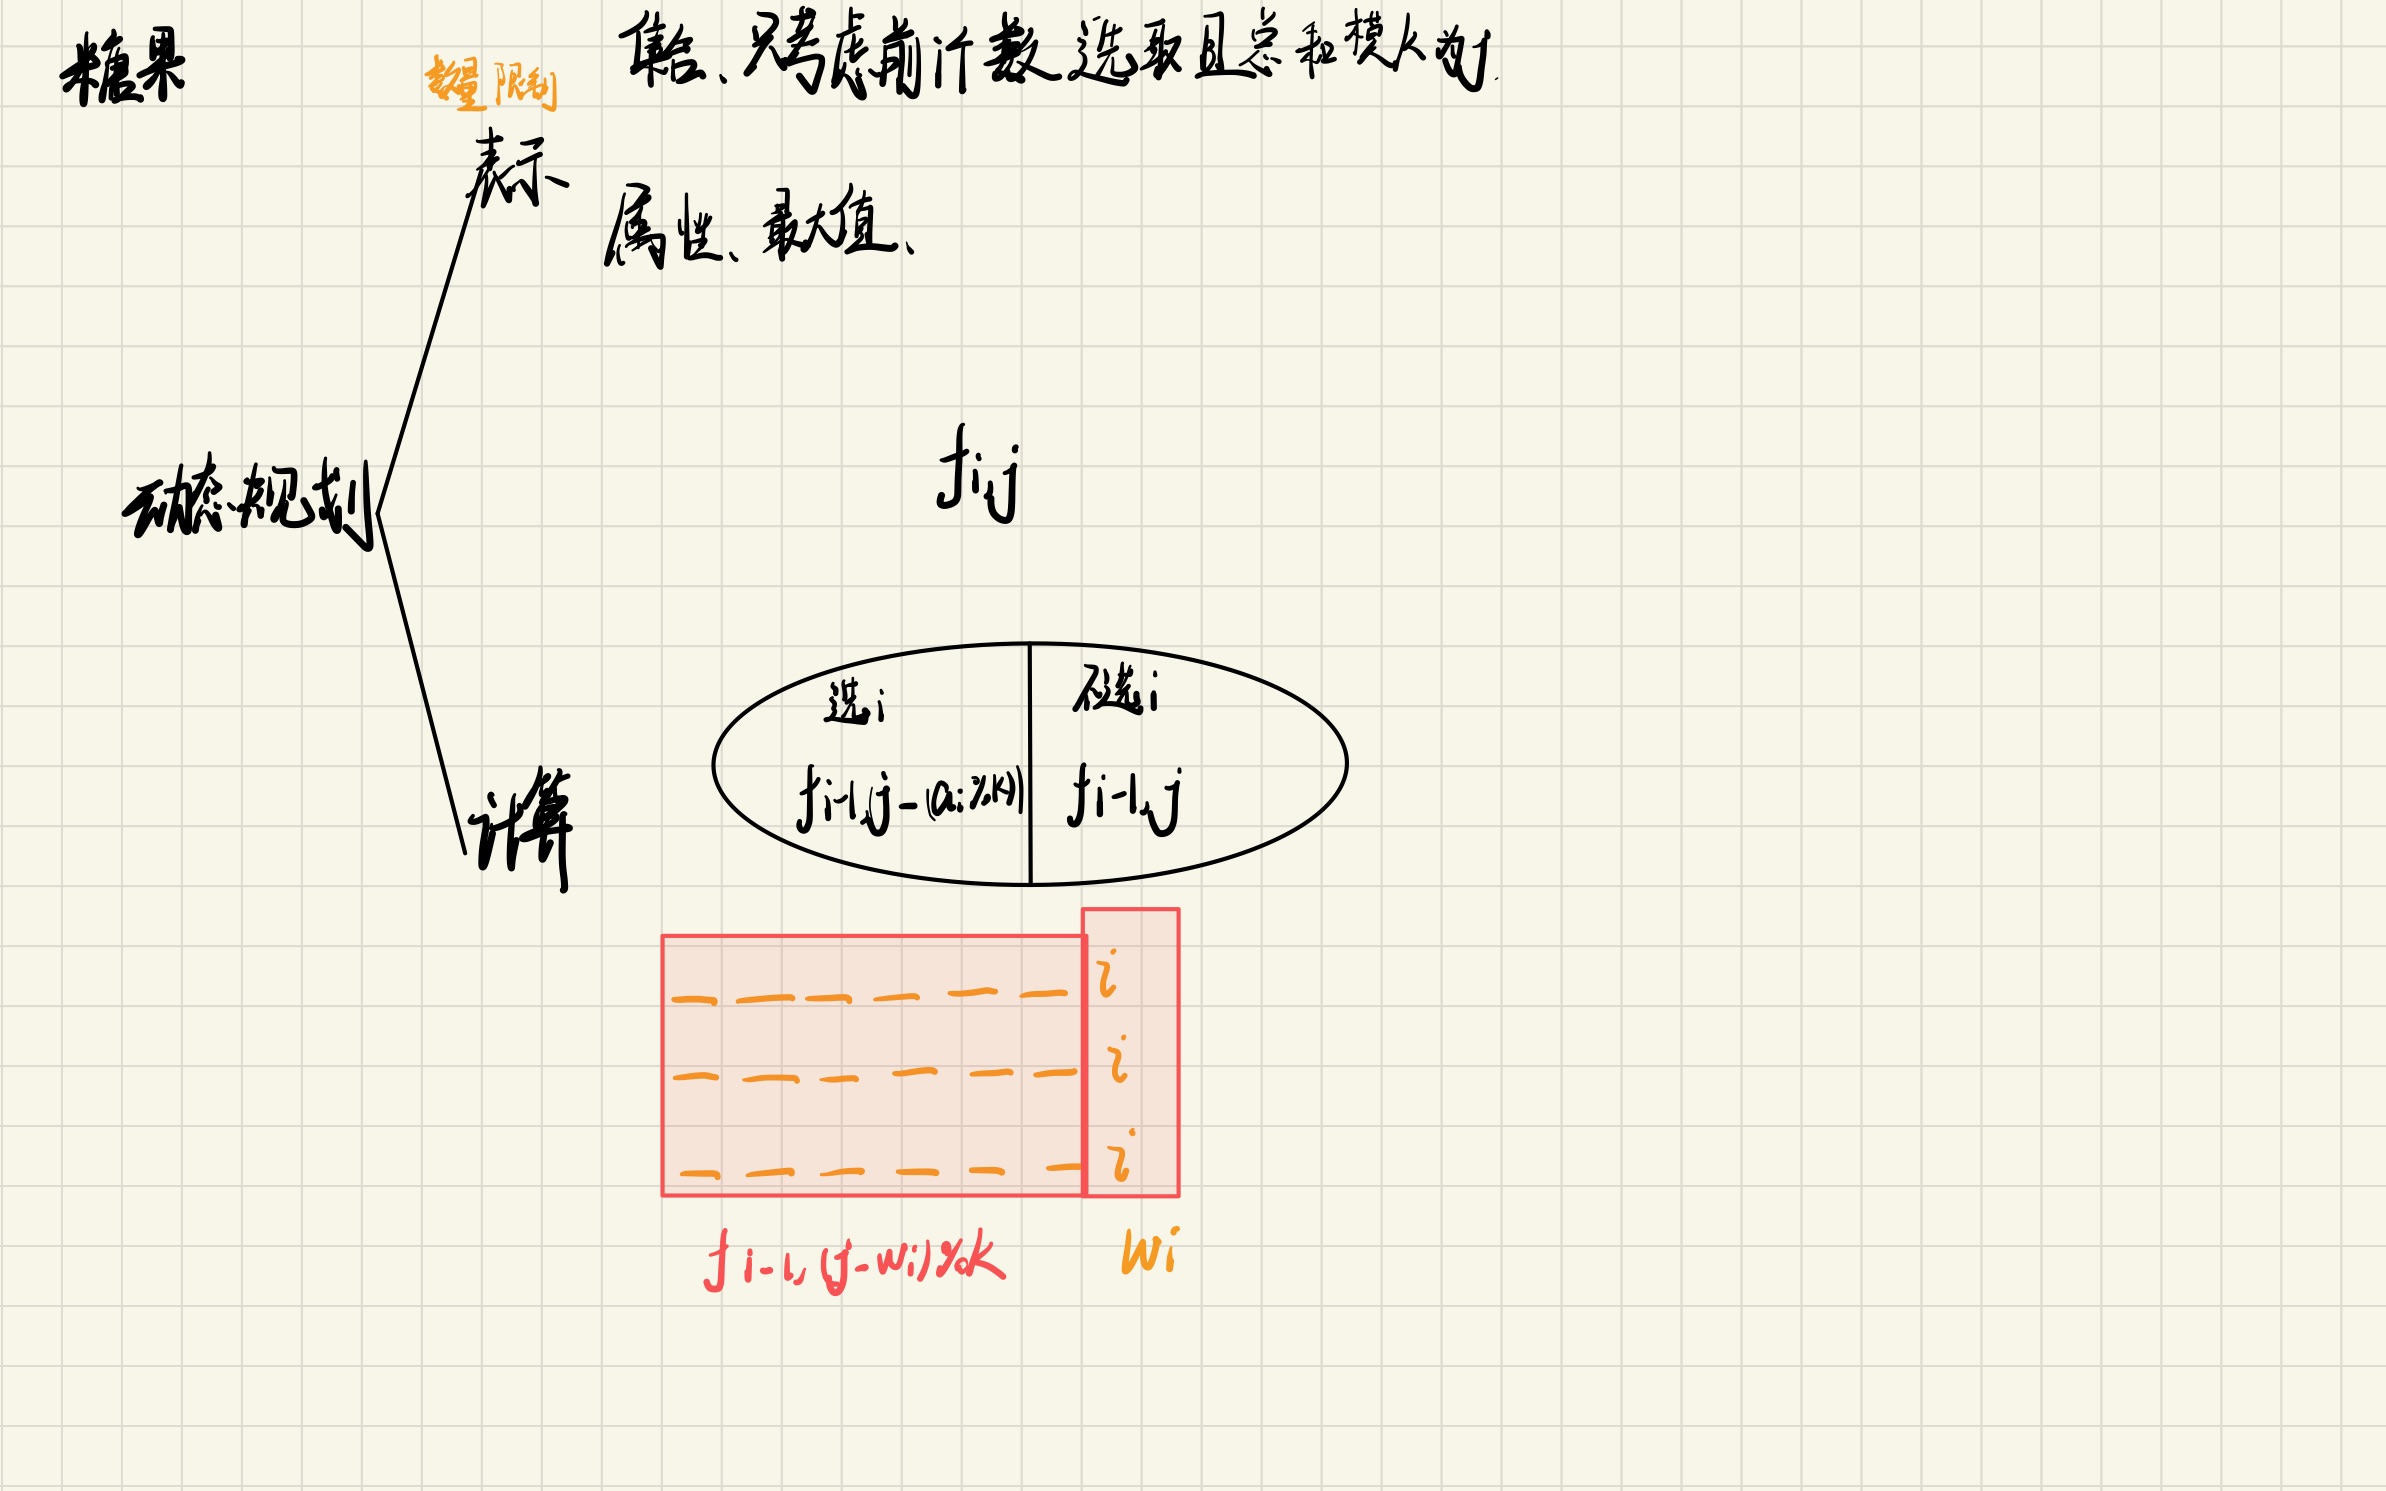 糖果
数量限制
集合、只考虑前i个数选取且总和模K为j.
表示
属性、最大值、
动态规划
fi,j
选i
不选i
fi-1,(j-(ai%k))
fi-1,j
计算
i
i
i
fi-1,(j-wi)%k
wi